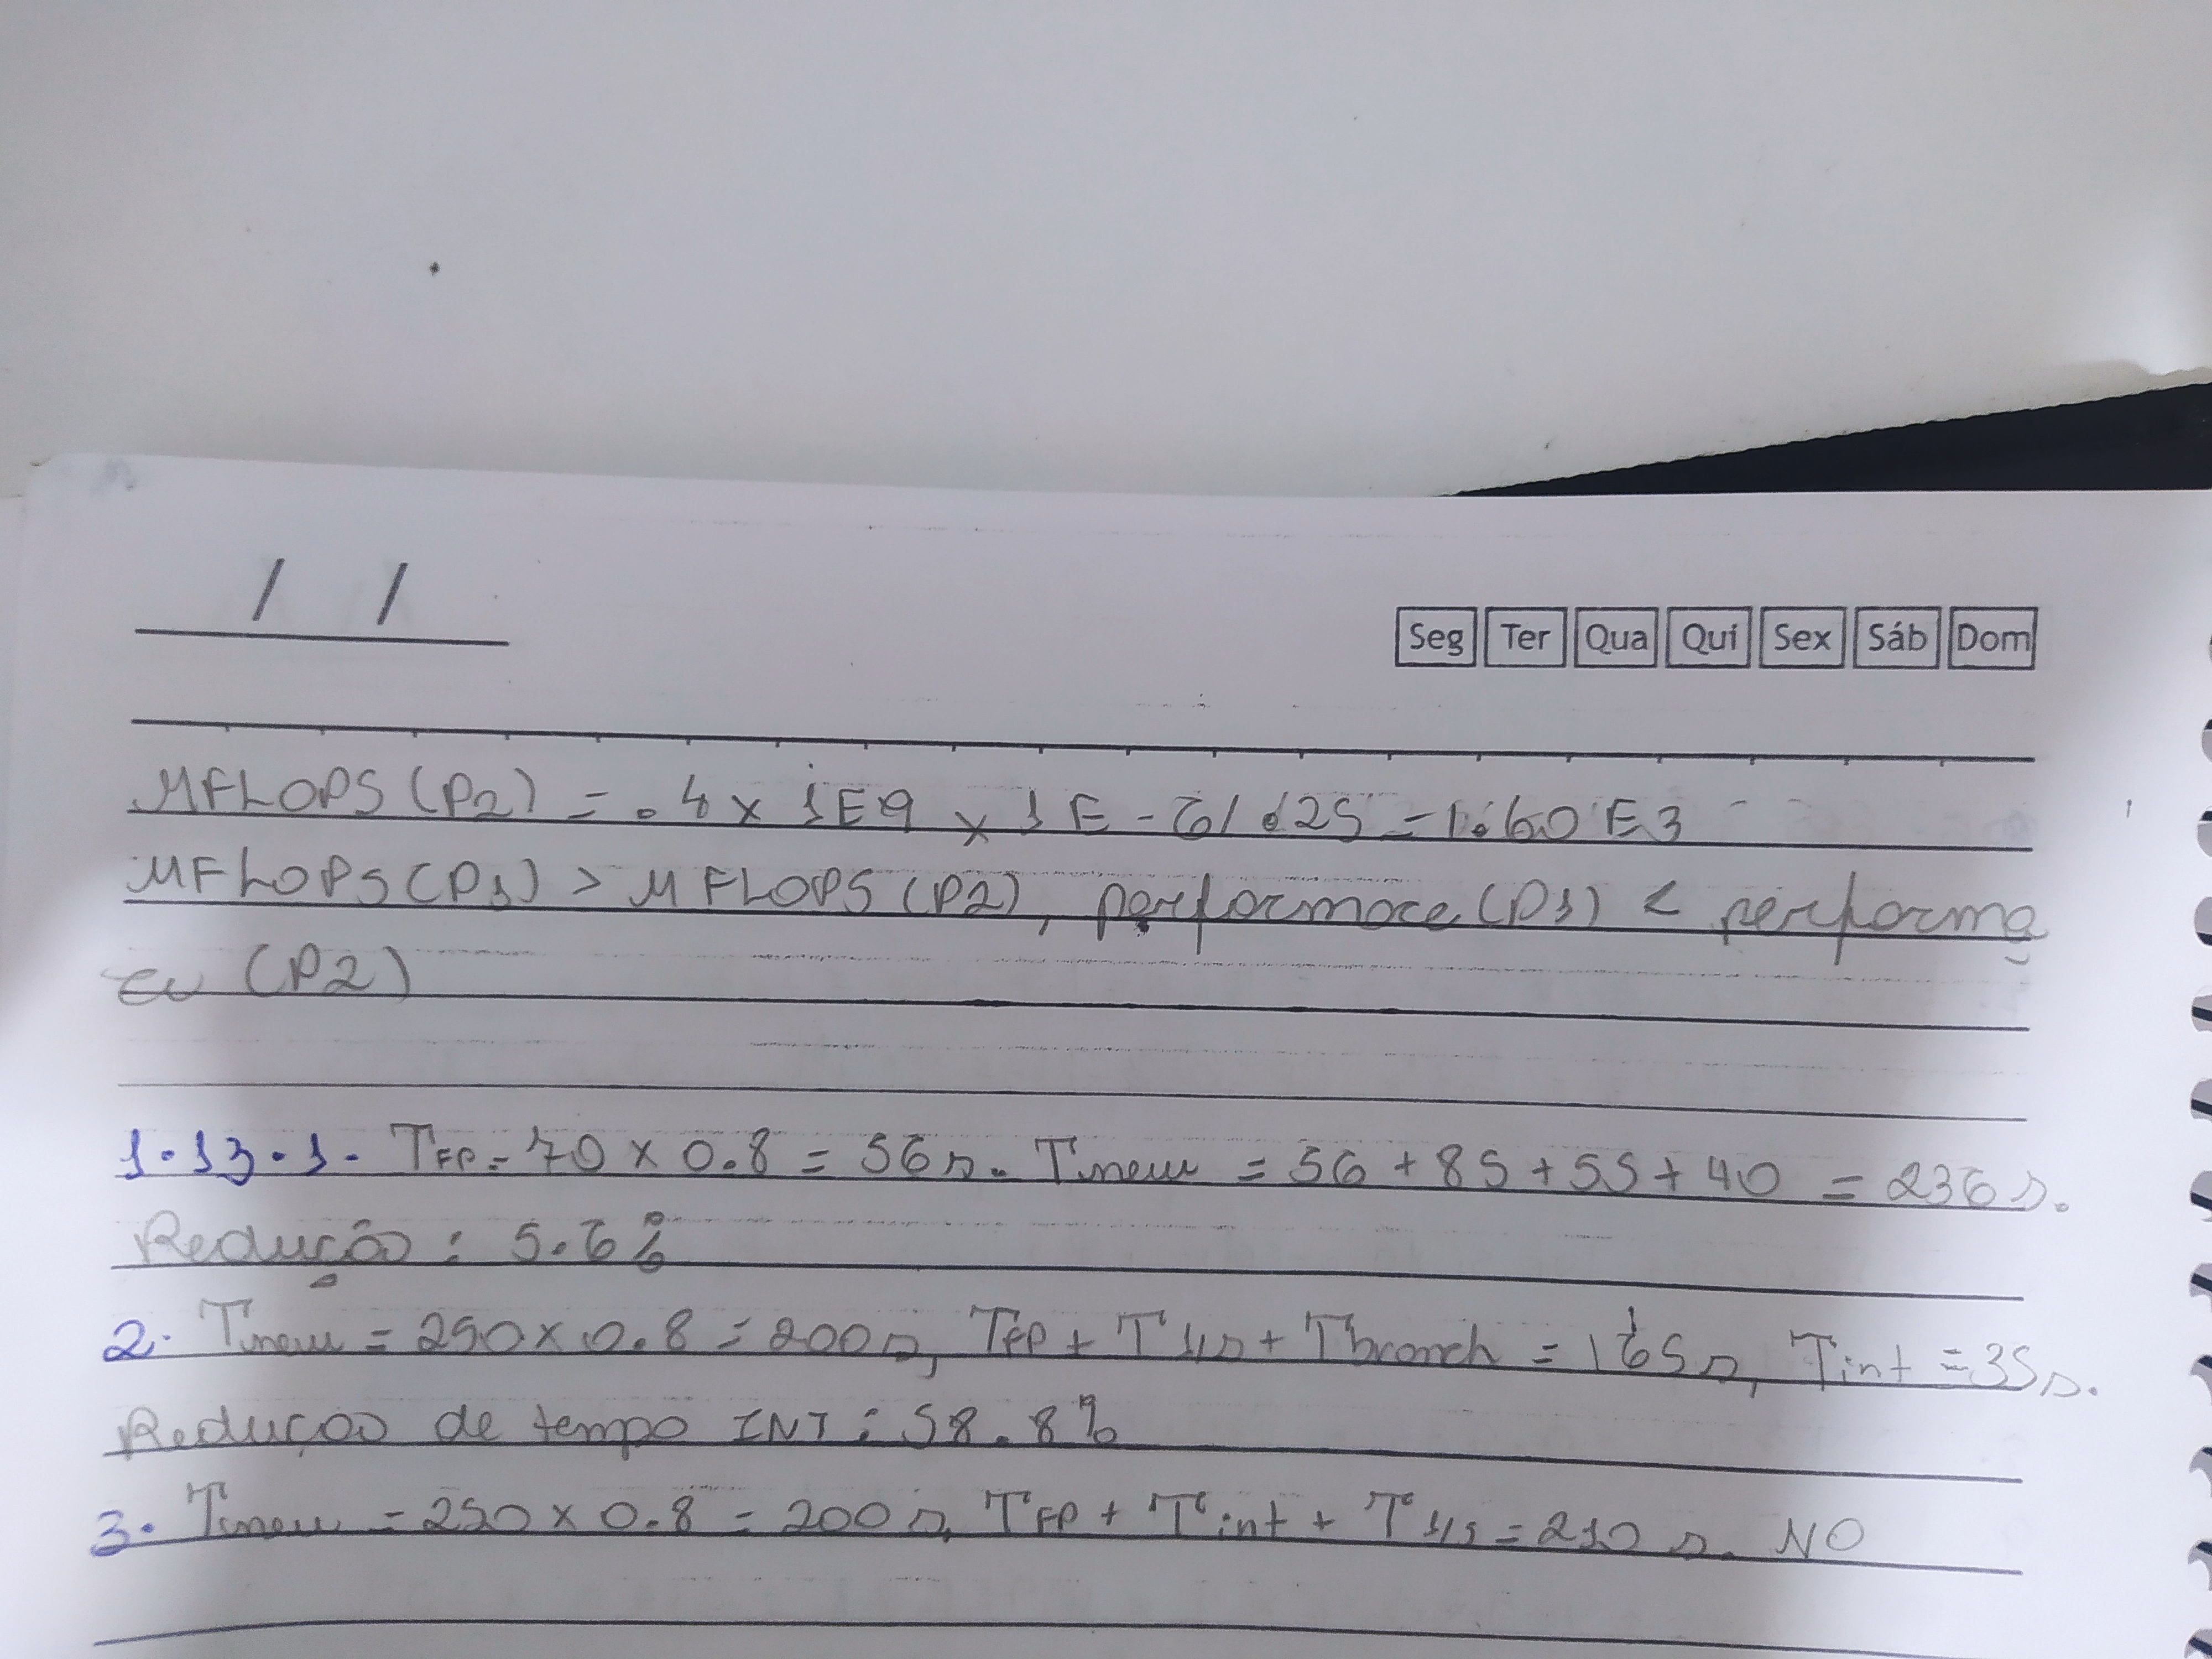 / /
Seg Ter Qua Qui Sex Sáb Dom
MFLOPS(P2) = .4 x 1E9 x 1E-6/.25 = 1.60E3
MFLOPS(P1) > MFLOPS(P2), performace(P1) < performa
ce (P2)
1.13.1. TFP = 70 x 0.8 = 56s. Tnew = 56 + 85 + 55 + 40 = 236s.
Redução: 5.6%
2. Tnew = 250 x 0.8 = 200s, TFP + Tl/s + Tbranch = 165s, Tint = 35s.
Redução de tempo INT: 58.8%
3. Tnew = 250 x 0.8 = 200s, TFP + Tint + Tl/s = 210s. NO